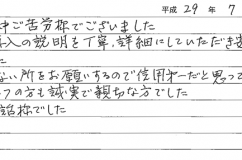 平成 29 年 7
中ご苦労様でございました
入の説明を丁寧、詳細にしていただき
た
ない所をお願いするので信用第一だと思って
つの方も誠実で親切な方でした
話様でした